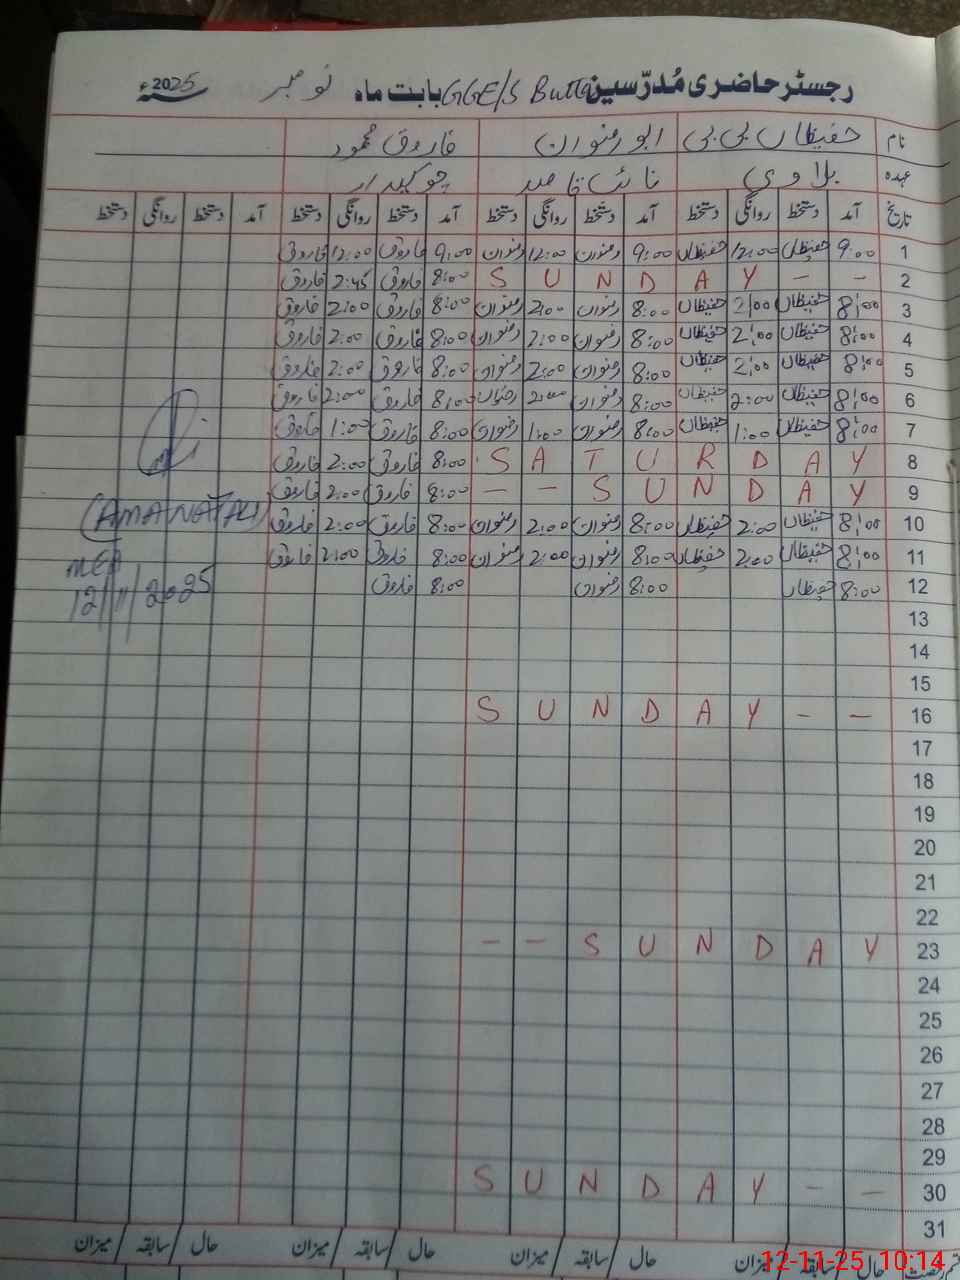 رجسٹر حاضری مُدرّسین GGE/S Butta بابت ماہ نومبر سنہ 2025ء
نام حفیظاں بی بی ابو رضوان فاروق محمود
عہدہ بلاوی نائب قاصد چوکیدار
تاریخ آمد دستخط روانگی دستخط آمد دستخط روانگی دستخط آمد دستخط روانگی دستخط آمد دستخط روانگی دستخط
1 9:00 حفیظاں 12:00 حفیظاں 9:00 رضوان 12:00 رضوان 9:00 فاروق 12:00 فاروق
2 S U N D A Y - - 8:00 فاروق 2:45 فاروق
3 8:00 حفیظاں 2:00 حفیظاں 8:00 رضوان 2:00 رضوان 8:00 فاروق 2:00 فاروق
4 8:00 حفیظاں 2:00 حفیظاں 8:00 رضوان 2:00 رضوان 8:00 فاروق 2:00 فاروق
5 8:00 حفیظاں 2:00 حفیظاں 8:00 رضوان 2:00 رضوان 8:00 فاروق 2:00 فاروق
6 8:00 حفیظاں 2:00 حفیظاں 8:00 رضوان 2:00 رضوان 8:00 فاروق 2:00 فاروق
7 8:00 حفیظاں 1:00 حفیظاں 8:00 رضوان 1:00 رضوان 8:00 فاروق 1:00 فاروق
8 S A T U R D A Y 8:00 فاروق 2:00 فاروق
9 - - S U N D A Y 8:00 فاروق 2:00 فاروق
10 8:00 حفیظاں 2:00 حفیظاں 8:00 رضوان 2:00 رضوان 8:00 فاروق 2:00 فاروق
(AMANAT ALI)
11 8:00 حفیظاں 2:00 حفیظاں 8:00 رضوان 2:00 رضوان 8:00 فاروق 2:00 فاروق
MEA
12 8:00 حفیظاں 8:00 رضوان 8:00 فاروق
12/11/2025
13
14
15
16 S U N D A Y - -
17
18
19
20
21
22
23 - - S U N D A Y
24
25
26
27
28
29
30 S U N D A Y - -
31
حال / سابقہ / میزان حال / سابقہ / میزان حال / سابقہ / میزان حال میزان
12-11-25 10:14